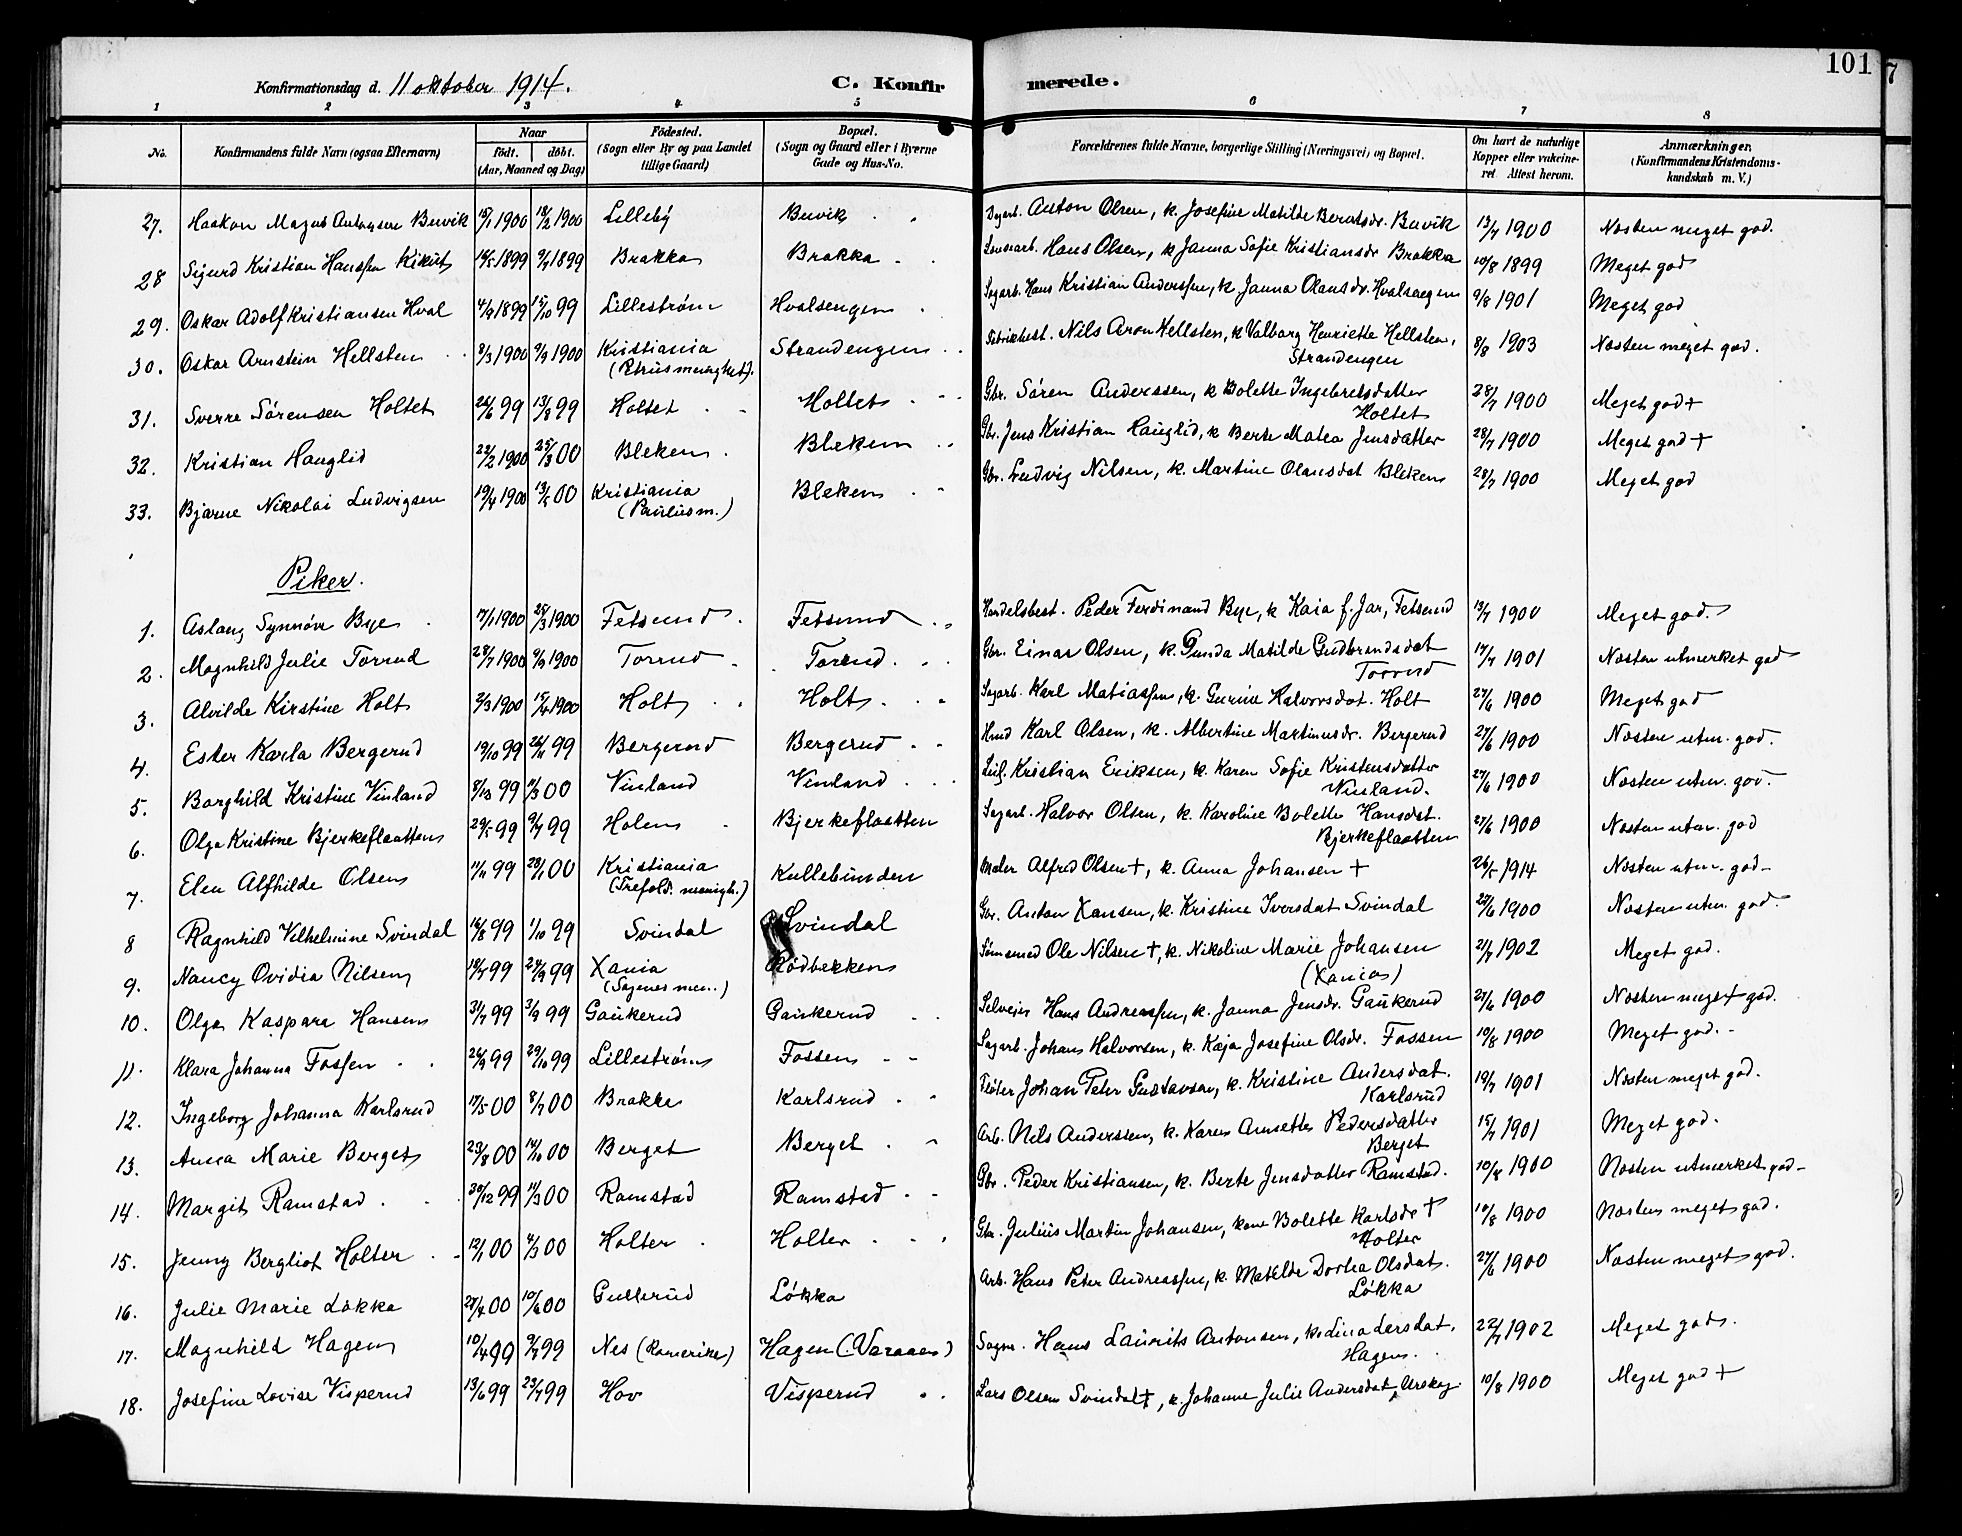 101
Konfirmationsdag d. 11 oktober 1914. C. Konfirmerede.
1 2 3 4 5 6 7 8
No. Konfirmandens fulde Navn (ogsaa Efternavn) Naar født. døbt. (Aar, Maaned og Dag) Fødested. (Sogn eller By og paa Landet tillige Gaard) Bopæl. (Sogn og Gaard eller i Byerne Gade og Hus-No. Forældrenes fulde Navne, borgerlige Stilling (Næringsvei) og Bopæl. Om havt de naturlige Kopper eller vakcineret Attest herom. Anmærkninger. (Konfirmandens Kristendomskundskab m. V.)
27. Haakon Magnus Antonsen Buvik 15/1 1900 18/2 1900 Lilleby Buvik Dagarb. Anton Olsen, k. Josefine Matilde Berntsdr. Buvik 13/7 1900 Næsten meget god.
28 Sigurd Kristian Hanssen Kikut 1899 9/7 1899 Brakka Brakka Hans Olsen, k Janna Sofie Kristiansdr Brakka 10/8 1899 Meget god
29. Oskar Adolf Kristiansen Hval 4/9 1899 15/10 99 Lillestrøm Hvalsengen Sagarb. Hans Kristian Anderssen, k Janna Olausdr. Hvalsengen 9/8 1901 Meget god
30. Oskar Arnstein Hellsten 8/3 1900 9/9 1900 Kristiania Strandengen Fabrikbest. Nils Aron Hellsten, k Valborg Henriette Hellsten, 8/8 1903 Næsten meget god.
(Petrus menighet). Strandengen
31. Sverre Sørensen Holtet 26/6 99 13/8 99 Holtet Holtet Gbr. Søren Anderssen, k Bolette Ingebretsdatter 28/7 1900 Meget god +
Holtet
32. Kristian Hauglid 22/2 1900 25/3 00 Bleken Bleken Gbr. Jens Kristian Hauglid, k Berte Matea Jensdatter 28/7 1900 Meget god +
33. Bjarne Nikolai Ludvigsen 19/4 1900 13/5 00 Kristiania Bleken Gbr. Ludvig Nilsen, k. Martine Olausdat Bleken 28/7 1900 Meget god
(Paulus m.)
Piker.
1. Aslaug Synnøve Bye 17/1 1900 25/3 1900 Fetsund Fetsund Handelsbest. Peder Ferdinand Bye, k Kaia f. Jar, Fetsund 13/7 1900 Meget god
2. Magnhild Julie Torrud 28/7 1900 9/9 1900 Torrud Torrud Gbr. Einar Olsen, k. Gunda Matilde Gudbrandsdat 17/7 1901 Næsten utmerket god
Torrud
3. Alvilde Kirstine Holt 2/3 1900 15/4 1900 Holt Holt Sagarb. Karl Matiassen, k. Gurine Halvorsdat. Holt 27/6 1900 Meget god
4. Ester Karla Bergerud 19/10 99 26/11 99 Bergerud Bergerud Karl Olsen, k. Albertine Martinusdr. Bergerud 27/6 1900 Næsten utm. god.
5. Borghild Kristine Vinland 99 00 Vinland Vinland Kristian Eriksen, k. Karen Sofie Kristensdatter 27/6 1900 Næsten utm. god
Vinland.
6. Olga Kristine Bjerkeflaatten 29/5 99 9/7 99 Holen Bjerkeflaatten Sagarb. Halvor Olsen, k. Karoline Bolette Hansdat. 27/6 1900 Næsten utm. god
Bjerkeflaatten
7. Elen Alfhilde Olsen 99 28/1 00 Kristiania Kullebunden Maler Alfred Olsen +, k. Anna Johansen + 26/5 1914 Næsten utm. god
(Trefold. menigh.)
8 Ragnhild Vilhelmine Svindal 16/8 99 1/10 99 Svindal Svindal Gbr. Anton Hansen, k. Kristine Iversdat Svindal 1900 Næsten utm. god.
9. Nancy Ovidia Nilsen 18/7 99 24/9 99 Xania Rødbekken Ole Nilsen +, k. Nikoline Marie Johansen 21/7 1902 Meget god.
(Sagenes men..) (Xania)
10. Olga Kaspara Hansen 31/7 99 3/9 99 Gaukerud Gaukerud Selveier Hans Andreassen, k. Janna Jensdr. Gaukerud 27/6 1900 Næsten meget god.
11. Klara Johanna Fossen 26/9 99 29/10 99 Lillestrøm Fossen Sagarb. Johans Halvorsen, k. Kaja Josefine Olsdr. Fossen 10/8 1900 Meget god.
12. Ingeborg Johanna Karlsrud 17/5 00 8/7 00 Brakke Karlsrud Fløter Johan Peter Gustavsen, k. Kristine Andersdat. 19/7 1901 Næsten meget god.
Karlsrud
13. Anna Marie Berget 23/8 00 14/10 00 Berget Berget Arb. Nils Anderssen, k. Karen Annette Pedersdatter 15/7 1901 Meget god.
Berget
14. Margit Ramstad 30/12 99 11/3 00 Ramstad Ramstad Gbr. Peder Kristiansen, k. Berte Jensdatter Ramstad. 10/8 1900 Næsten utmerket god
15. Jenny Bergliot Holter 12/1 00 4/3 00 Holter Holter Gbr. Julius Martin Johansen, kone Bolette Karlsdr + 10/8 1900 Næsten meget god.
Holter
16. Julie Marie Løkka 27/4 00 10/6 00 Gullerud Løkka Arb. Hans Peter Andreassen, k. Matilde Dorthea Olsdat. 27/6 1900 Næsten meget god.
Løkka
17. Magnhild Hagen 10/4 99 9/7 99 Nes (Romerike) Hagen (Varaaen) Hans Laurits Antonsen, k. 22/7 1902 Meget god.
Hagen.
18. Josefine Lovise Visperud 13/6 99 23/7 99 Hov Visperud Lars Olsen Svindal +, k. Johanne Julie Andersdat, Urskog. 10/8 1900 Meget god +